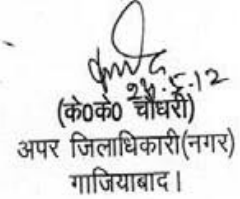 24.5.12
(के0के0 चौधरी)
अपर जिलाधिकारी(नगर)
गाजियाबाद।